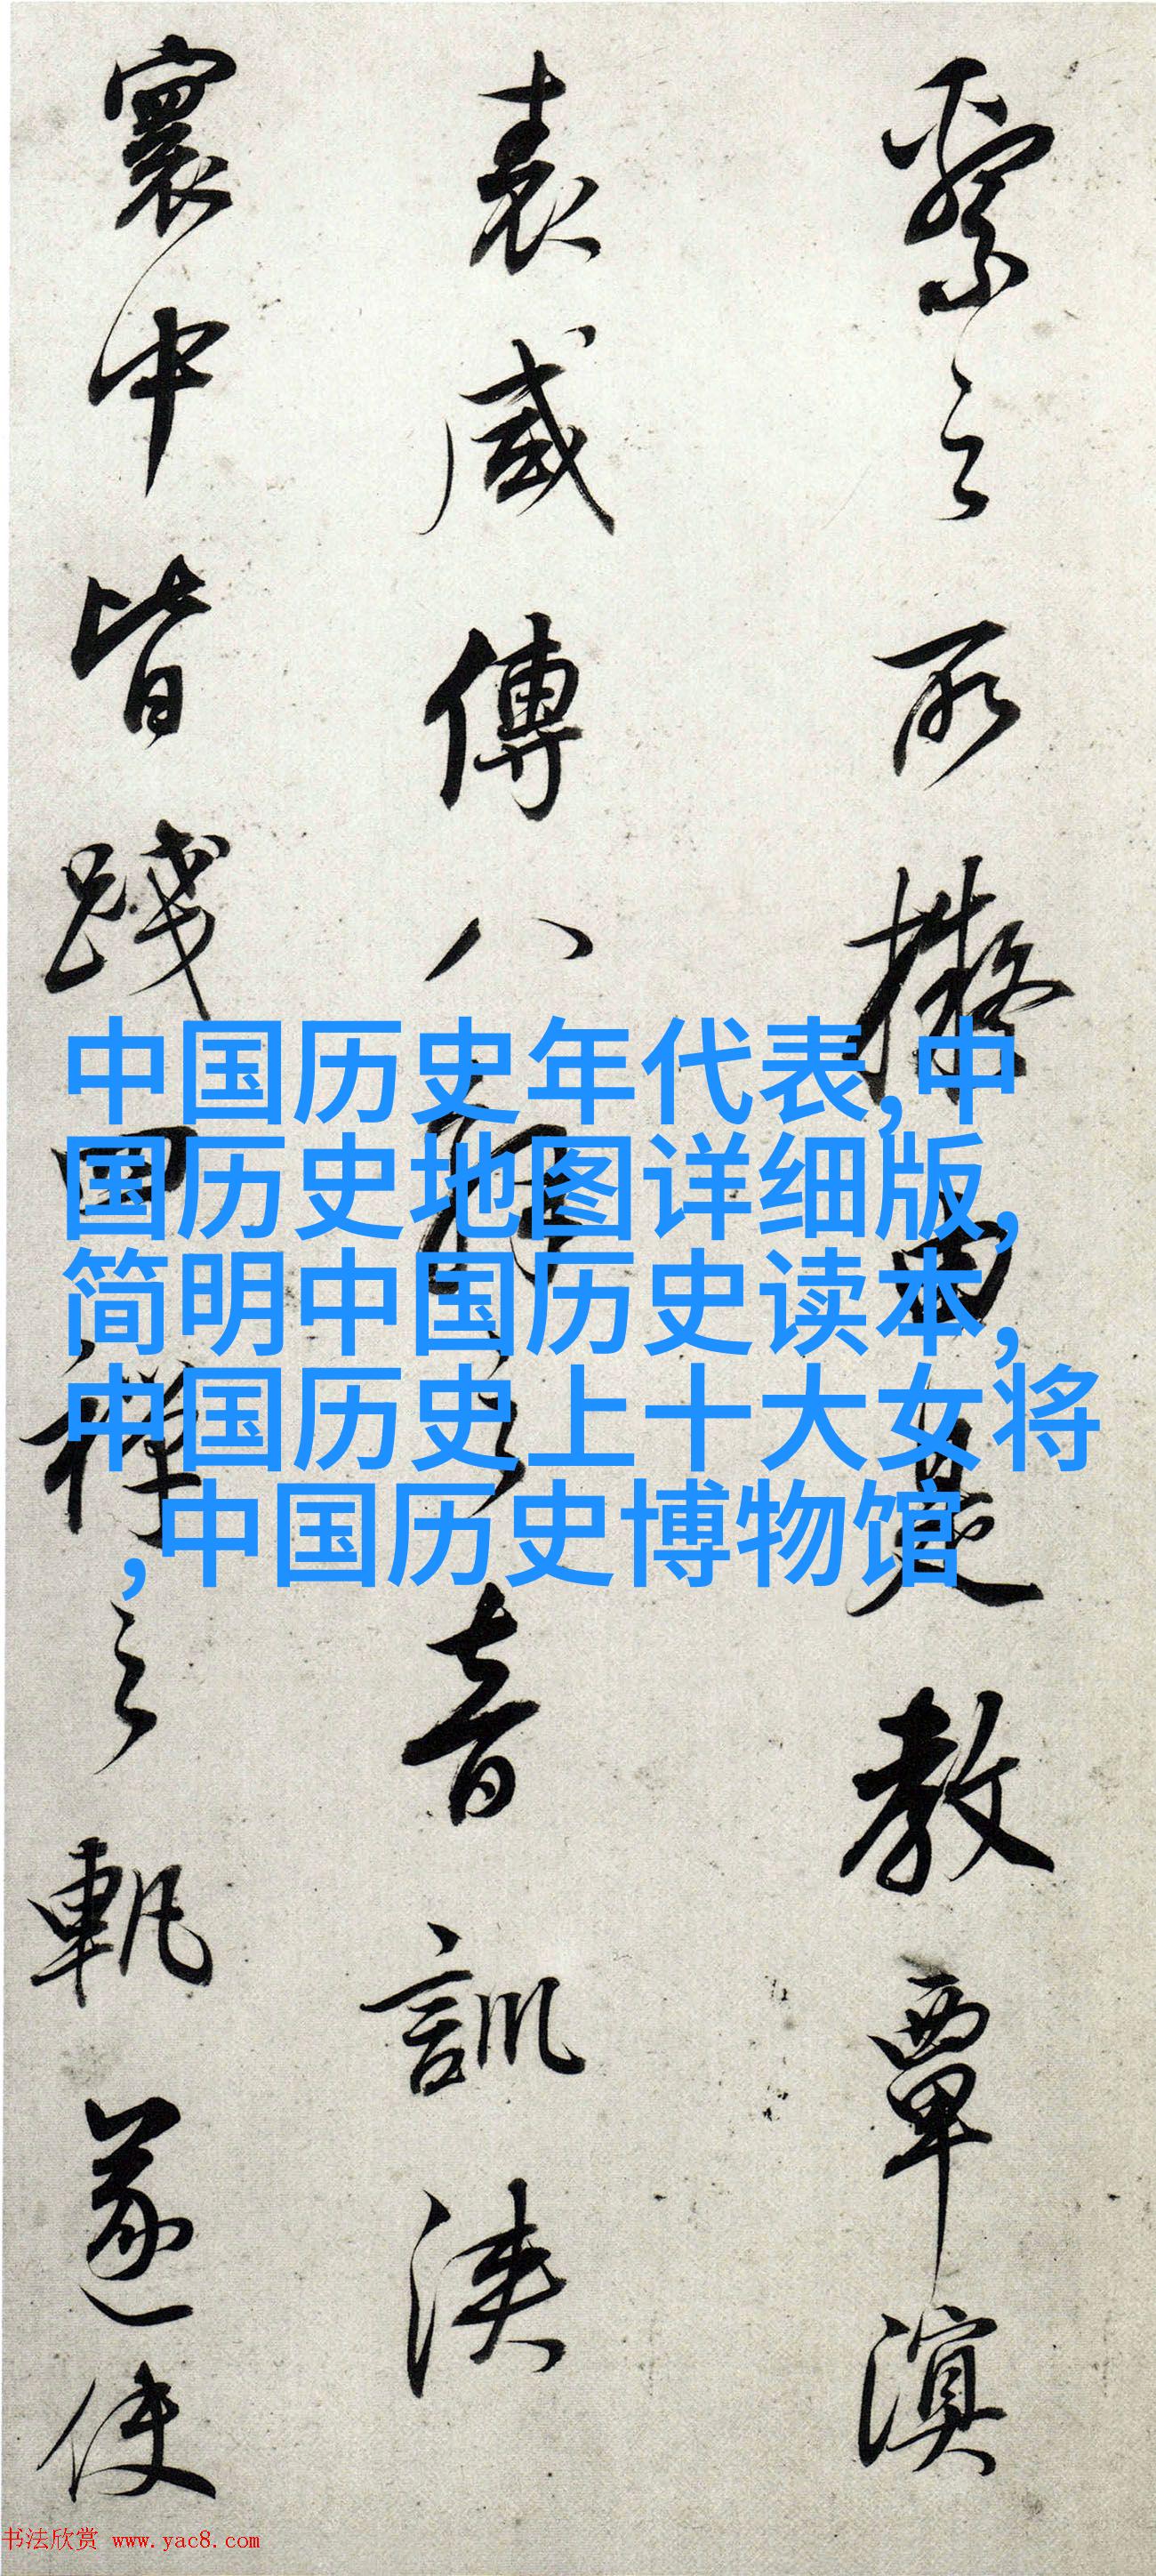 繄之所擬由是教覃溟
表咸傳八解之音訓浹
寰中皆踐四禪之軌遂使
中国历史年代表,中
国历史地图详细版,
简明中国历史读本,
中国历史上十大女将
,中国历史博物馆
书法欣赏 www.yac8.com